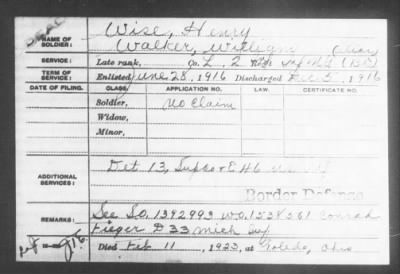 NAME OF SOLDIER: Wise, Henry
Walker, William (alias)
SERVICE: Late rank, Co. L, 2
TERM OF SERVICE: Enlisted June 28, 1916 Discharged Dec 5, 1916
DATE OF FILING. CLASS. APPLICATION NO. LAW. CERTIFICATE NO.
Soldier, No Claim
Widow,
Minor,
ADDITIONAL SERVICES: Det 13,
Border Defense
REMARKS: See S.O. 1392993 W.O. 1538561 Conrad
Fieger D 33 Mich Inf
Died Feb 11, 1923, at Toledo, Ohio